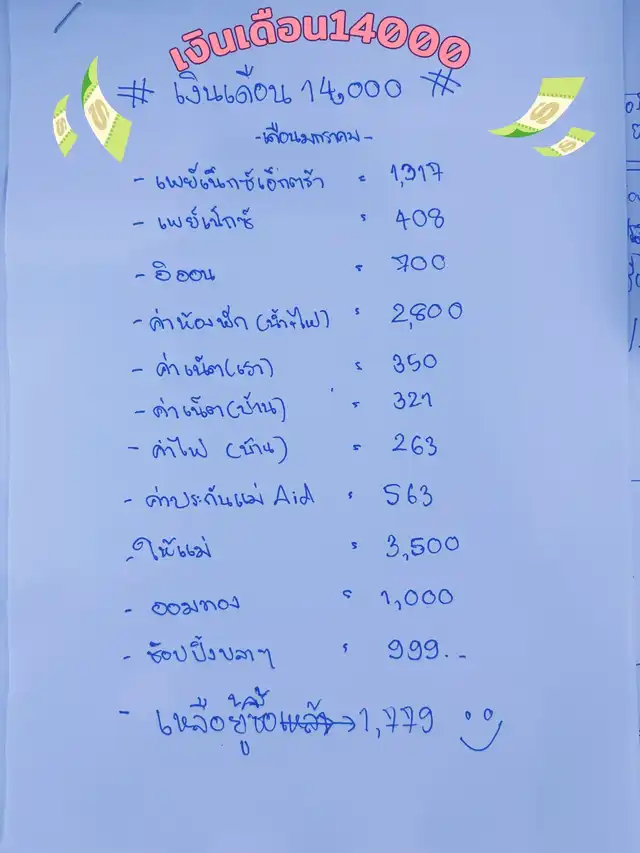 เงินเดือน14000
# เงินเดือน 14,000 #
-เดือนมกราคม-
- เพย์เน็กซ์เอ็กตร้า = 1,317
- เพย์เน็กซ์ = 408
- อิออน = 700
- ค่าห้องพัก (น้ำ+ไฟ) = 2,800
- ค่าเน็ต(เรา) = 350
- ค่าเน็ต(บ้าน) = 321
- ค่าไฟ (บ้าน) = 263
- ค่าประกันแม่ AiA = 563
- ให้แม่ = 3,500
- ออมทอง = 1,000
- ช้อปปิ้งบลาๆ = 999..
- เหลือ 1,779